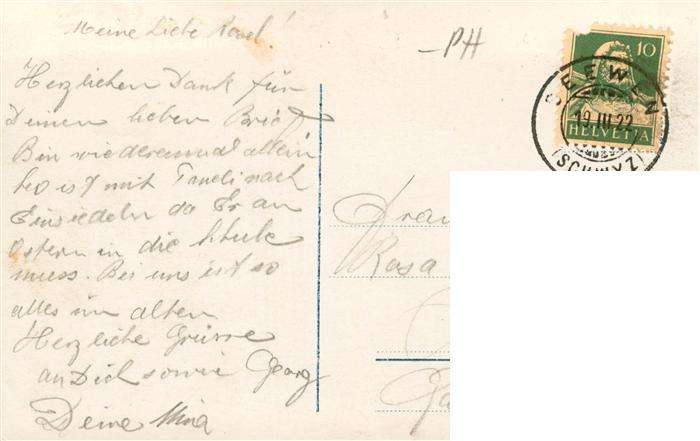 Meine Liebe Rosel!
Herzlichen Dank für
Deinen lieben Brief
Bin wiedereinmal allein
Leo ist mit Trudeli nach
Einsiedeln da Er an
Ostern in die Schule
muss. Bei uns ist so
alles im alten
Herzliche Grüsse
an Dich sowie Georg
Deine Mina
-PH
10
HELVETIA
SEEWEN
19.III.22
(SCHWYZ)
Frau
Rosa